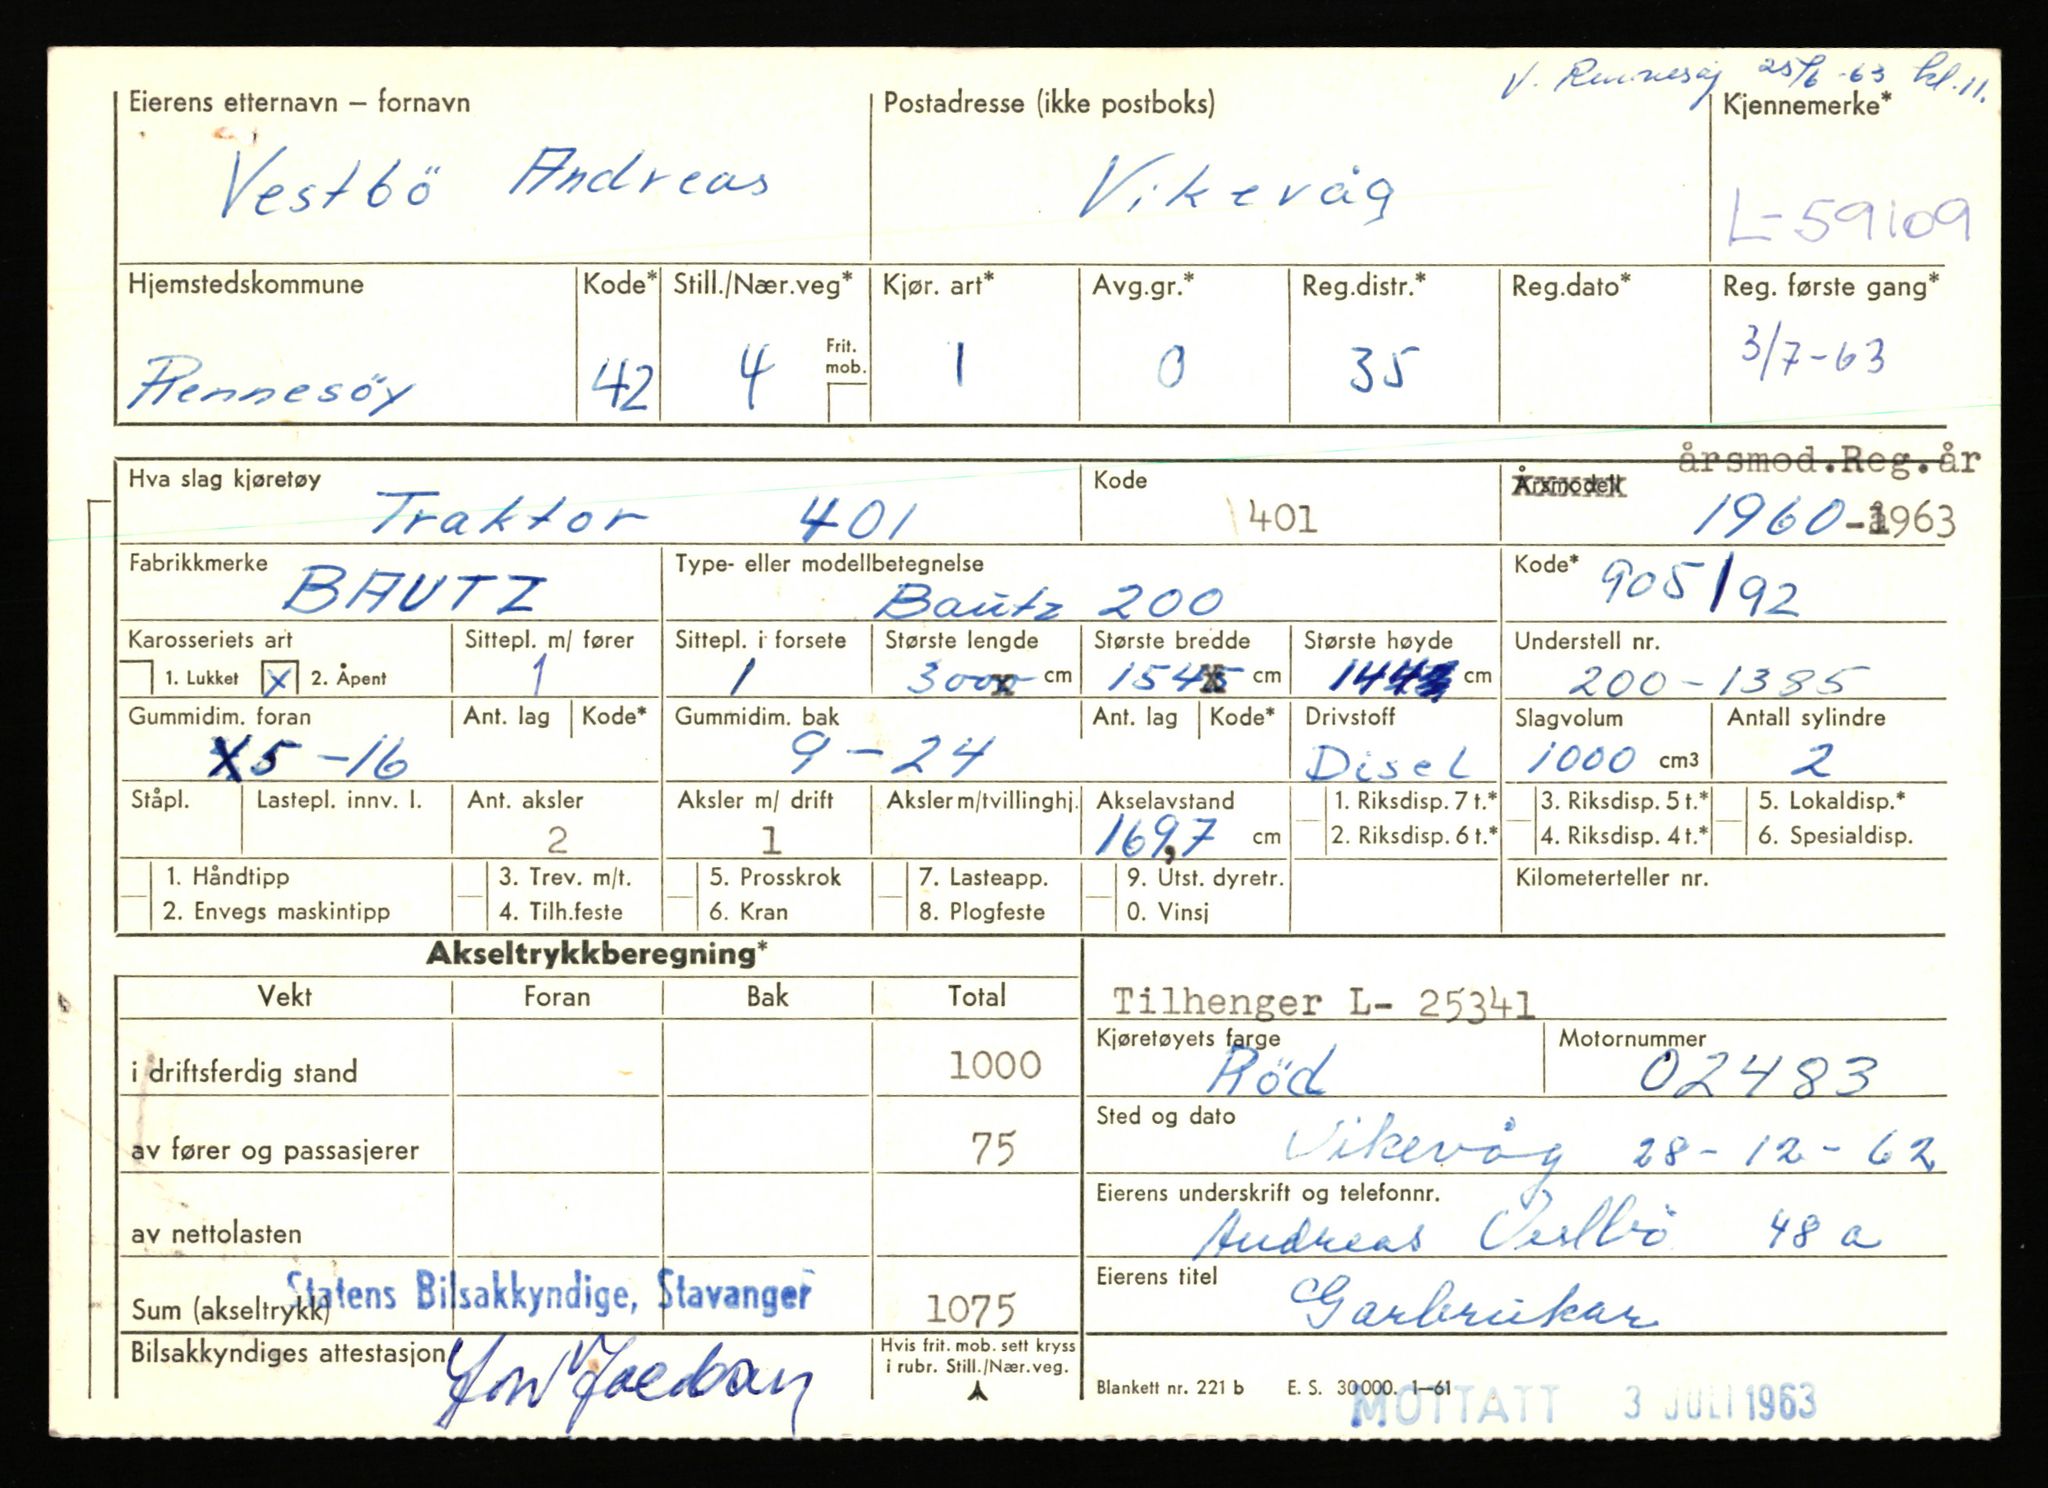 V. Rennesøy 25/6-63 kl. 11.
Eierens etternavn – fornavn Postadresse (ikke postboks) Kjennemerke*
Vestbö Andreas Vikevåg L-59109
Hjemstedskommune Kode* Still./Nær.veg* Kjør. art* Avg.gr.* Reg.distr.* Reg.dato* Reg. første gang*
Rennesöy 42 4 Frit. mob. 1 0 35 3/7-63
årsmod.Reg.år
Hva slag kjøretøy Kode Årsmodell
Traktor 401 401 1960-1963
Fabrikkmerke Type- eller modellbetegnelse Kode*
BAUTZ Bautz 200 905/92
Karosseriets art Sittepl. m/ fører Sittepl. i forsete Største lengde Største bredde Største høyde Understell nr.
1. Lukket x 2. Åpent 1 1 300 cm 154 cm 144 cm 200-1385
Gummidim. foran Ant. lag Kode* Gummidim. bak Ant. lag Kode* Drivstoff Slagvolum Antall sylindre
5-16 9-24 Disel 1000 cm3 2
Ståpl. Lastepl. innv. l. Ant. aksler Aksler m/ drift Aksler m/tvillinghj. Akselavstand 1. Riksdisp. 7 t.* 3. Riksdisp. 5 t.* 5. Lokaldisp.*
2 1 169,7 cm 2. Riksdisp. 6 t.* 4. Riksdisp. 4 t.* 6. Spesialdisp.
1. Håndtipp 3. Trev. m/t. 5. Prosskrok 7. Lasteapp. 9. Utst. dyretr. Kilometerteller nr.
2. Envegs maskintipp 4. Tilh.feste 6. Kran 8. Plogfeste 0. Vinsj
Akseltrykkberegning*
Vekt Foran Bak Total
Tilhenger L- 25341
Kjøretøyets farge Motornummer
i driftsferdig stand 1000
Röd 02483
Sted og dato
av fører og passasjerer 75
Vikevåg 28-12-62
Eierens underskrift og telefonnr.
av nettolasten
Andreas Vestbö 48 a
Eierens titel
Statens Bilsakkyndige, Stavanger
Sum (akseltrykk) 1075
Garbrukar
Bilsakkyndiges attestasjon
Hvis frit. mob. sett kryss
i rubr. Still./Nær.veg.
Blankett nr. 221 b E. S. 30000. 1–61
MOTTATT 3 JULI 1963